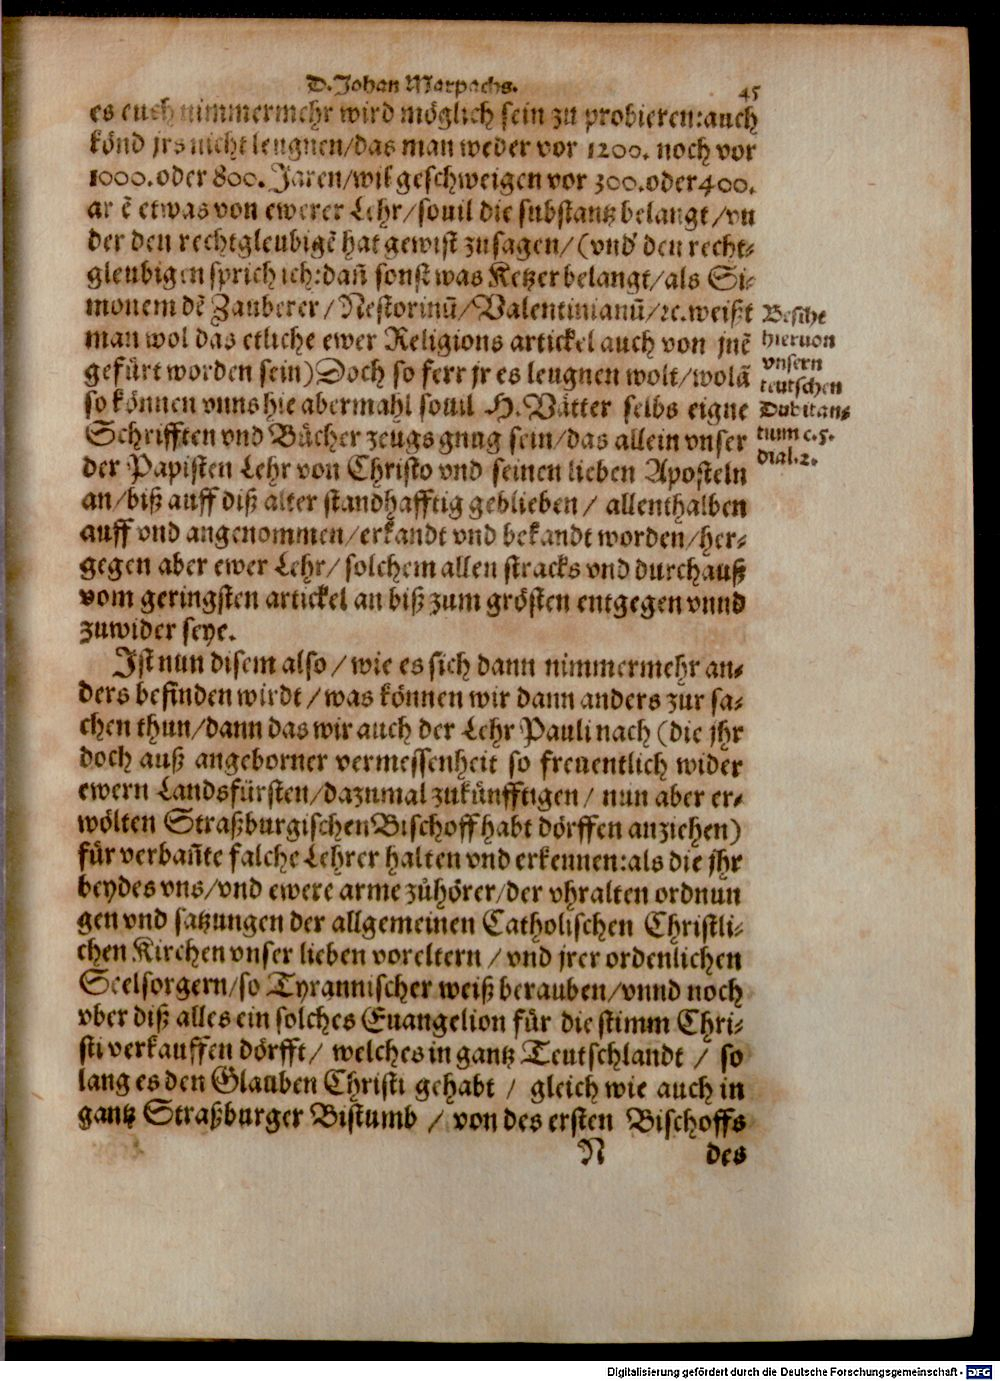 D. Johan Marpachs.
45
es euch nimmermehr wird möglich sein zu probieren: auch
könd jrs nicht leugnen/das man weder vor 1200. noch vor
1000. oder 800. Jaren/wil geschweigen vor 300. oder 400.
ar ē etwas von ewerer Lehr/souil die substantz belangt/vn
der den rechtgleubigē hat gewist zusagen/(vnd den recht-
gleubigen sprich ich: dañ sonst was Ketzer belangt/als Si-
monem dē Zauberer/Nestorinū/Valentinianū/ꝛc. weißt
man wol das etliche ewer Religions artickel auch von jnē
gefürt worden sein) Doch so ferr jr es leugnen wolt/wolā
so können vnns hie abermahl souil H. Vätter selbs eigne
Schrifften vnd Bücher zeugs gnug sein/das allein vnser
der Papisten Lehr von Christo vnd seinen lieben Aposteln
an/biß auff diß alter standhafftig geblieben/ allenthalben
auff vnd angenommen/erkandt vnd bekandt worden/her-
gegen aber ewer Lehr/solchem allen stracks vnd durchauß
vom geringsten artickel an biß zum grösten entgegen vnnd
zuwider seye.
Besihe
hieruon
vnsern
teutschen
Dubitan-
tium c. 5.
dial. 2.
Ist nun disem also/wie es sich dann nimmermehr an-
ders befinden wirdt/was können wir dann anders zur sa-
chen thun/dann das wir auch der Lehr Pauli nach (die jhr
doch auß angeborner vermessenheit so freuentlich wider
ewern Landsfürsten/dazumal zukünfftigen/ nun aber er-
wölten Straßburgischen Bischoff habt dörffen anziehen)
für verbañte falche Lehrer halten vnd erkennen: als die jhr
beydes vns/vnd ewere arme zůhörer/der vhralten ordnun
gen vnd satzungen der allgemeinen Catholischen Christli-
chen Kirchen vnser lieben voreltern/vnd jrer ordenlichen
Seelsorgern/so Tyrannischer weiß berauben/vnnd noch
vber diß alles ein solches Euangelion für die stimm Chri-
sti verkauffen dörfft/ welches in gantz Teutschlandt/ so
lang es den Glauben Christi gehabt/ gleich wie auch in
gantz Straßburger Bistumb/ von des ersten Bischoffs
N des
Digitalisierung gefördert durch die Deutsche Forschungsgemeinschaft - DFG